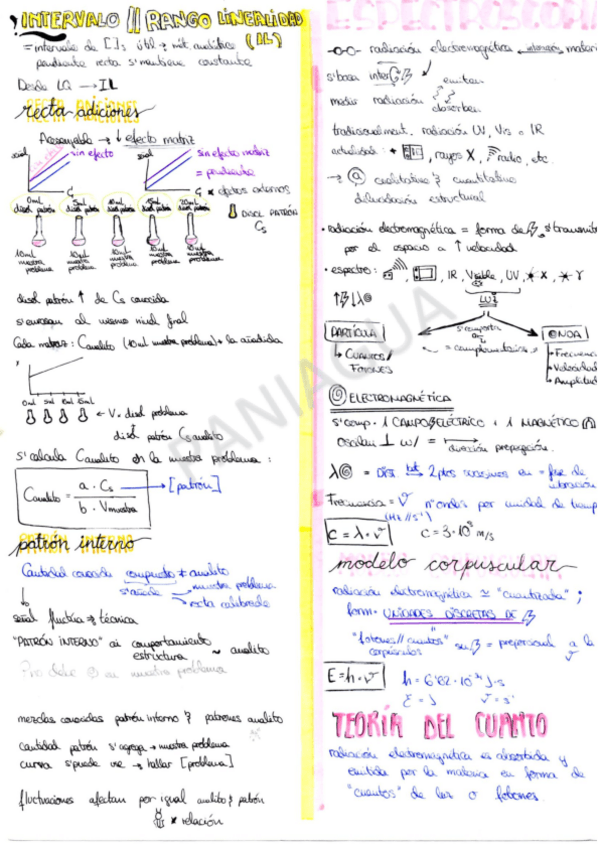 INTERVALO // RANGO LINEALIDAD
(IL)
= intervalo de [ ]s útil → mét. analítico
pendiente recta s'mantiene constante
Desde LQ → IL
recta adiciones
↓ efecto matriz
señal
sin efecto
señal
sin efecto matriz
= pendiente
× efectos externos
0ml disol. patrón
5ml disol. patrón
10ml disol. patrón
15ml disol. patrón
20ml disol. patrón
DISOL PATRÓN
Cs
10ml muestra problema
10ml muestra problema
10ml muestra problema
10ml muestra problema
10ml muestra problema
disol patrón ↑ de Cs conocida
s'enrasan al mismo nivel final
Cada matraz: Canalito (10ml muestra problema) + la añadida
0ml 5ml 10ml 15ml
← V. disol problema
disol patrón Cs analito
s'calcula Canalito en la muestra problema:
Canalito = a · Cs / b · Vmuestra
→ [patrón]
patrón interno
Cantidad conocida compuesto ≠ analito
s'añade
muestra problema
recta calibrado
señal fluctúa → técnica
"PATRÓN INTERNO" comportamiento
estructura ~ analito
No debe en muestra problema
mezclas conocidas patrón interno y patrones analito
cantidad patrón s'agrega → muestra problema
curva s'puede usar → hallar [problema]
fluctuaciones afectan por igual analito y patrón
× relación
ESPECTROSCOPIA
radiación electromagnética materia
s'basa
emiten
medir radiación
absorben
tradicionalment. radiación UV, Vis o IR
actualidad: + , rayos X, radio, etc.
→ cualitativa y cuantitativa
dilucidación estructural
• radiación electromagnética = forma de s'transmite
por el espacio a ↑ velocidad
• espectro: , IR, Visible, UV, X, γ
LUZ
PARTÍCULA
s'comporta
ONDA
↳ CUANTOS/
FOTONES
= complementarios
→ Frecuencia
→ Velocidad
→ Amplitud
ELECTROMAGNÉTICA
s'comp. 1 CAMPO ELÉCTRICO + 1 MAGNÉTICO
Oscilan ⊥ w/ = dirección propagación.
λ = DIST 2 ptos sucesivos en = fase de
vibración
Frecuencia = ν nº ondas por unidad de tiempo
(Hz // s⁻¹)
c = λ · ν
c = 3·10⁸ m/s
modelo corpuscular
radiación electromagnética "cuantizada";
form. UNIDADES DISCRETAS DE
"fotones // cuantos"
corpúsculos
= proporcional a la
ν
E = h · ν
h = 6'62·10⁻³⁴ J·s
E = J
ν = s⁻¹
TEORÍA DEL CUANTO
radiación electromagnética es absorbida y
emitida por la materia en forma de
"cuantos" de luz o fotones.
PANIAGUA